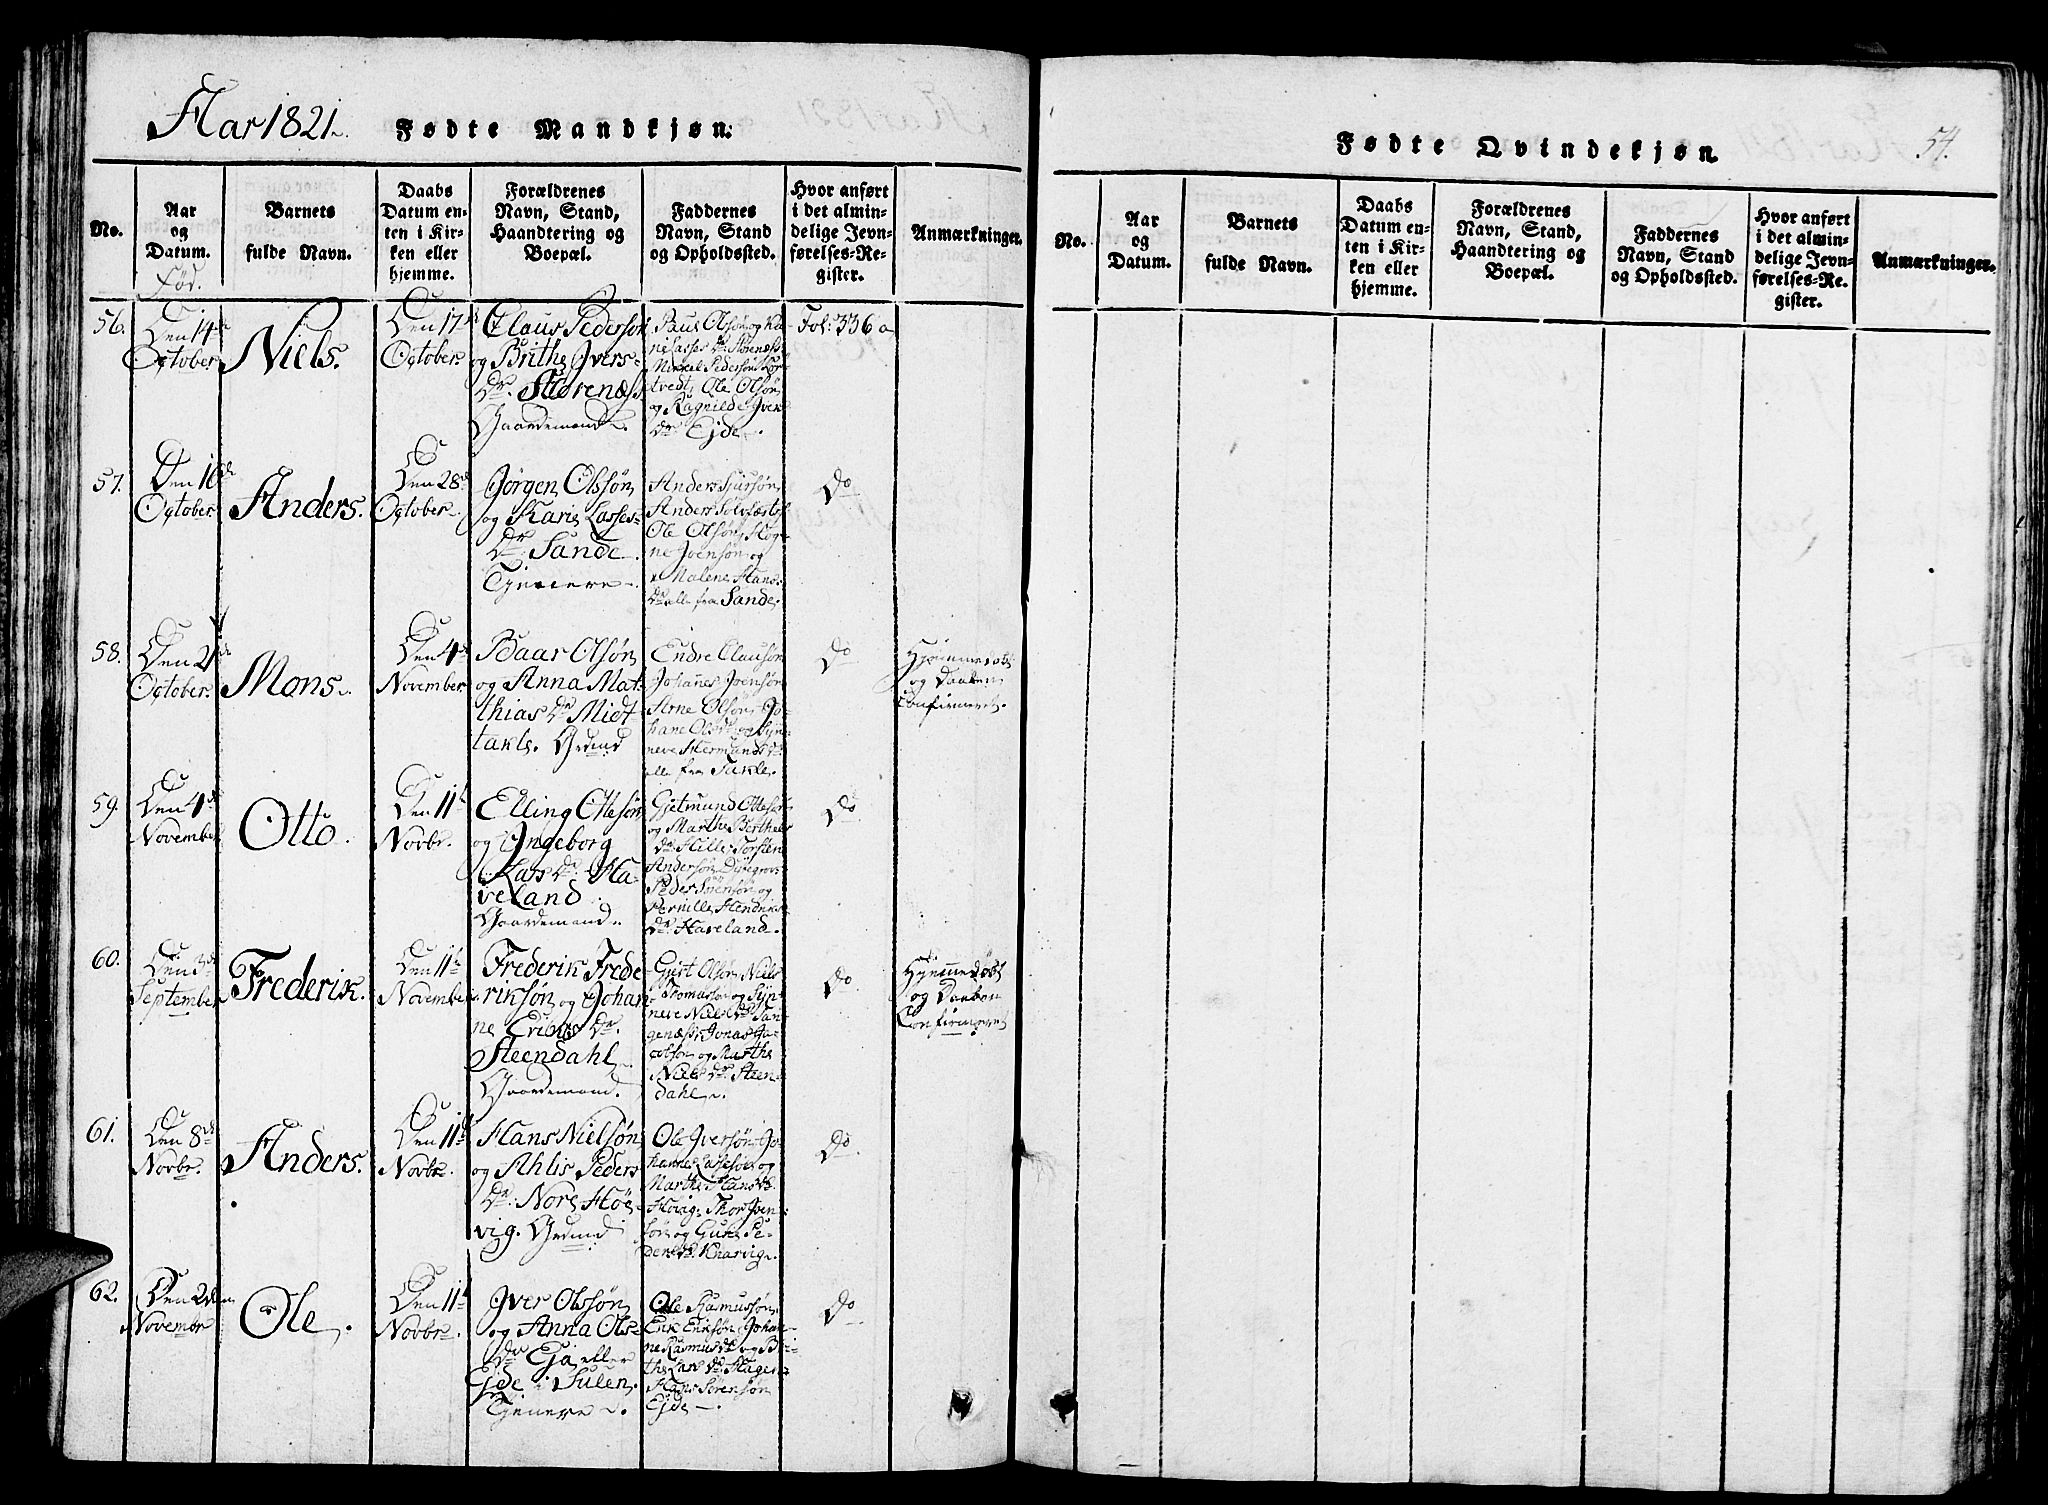 Aar 1821.
Fødte Mandkjøn.
No.
Aar
og
Datum.
Fød.
Barnets
fulde Navn.
Daabs
Datum en-
ten i Kir-
ken eller
hjemme.
Forældrenes
Navn, Stand,
Haandtering og
Boepæl.
Faddernes
Navn, Stand
og Opholdssted.
Hvor anført
i det almin-
delige Jevn-
førelses-Re-
gister.
Anmærkninger.
56.
Den 14de
October
Niels.
Den 17de
October
Claus Pederson
og Brithe Ivers-
Dr. Storenæss
Gaardemand.
Paul Olsøn og Ka-
ri Lasses Dr Storenæss
Mikkel Pedersøn
tvedt, Ole Olsøn
og Ragnilde Iver
Dr Eide.
Fol: 336 a
57.
Den 16de
October
Anders.
Den 28de
October
Jørgen Olssøn
og Kari Lasses-
Dr. Sande
Tjenere
Anders Siursøn
Anders
Ole Olsøn, Hog-
ne Joensøn og
Malene Hans
Dr alle fra Sande.
Do
58.
Den 21de
October
Mons.
Den 4de
November
Baar Olsøn
og Anna Mat-
thias Dr Midt
takle. Grdmd
Endre Clausøn
Johanes Joensøn
Arne Olsøn, Jo-
hane Ols Dr og Syn-
neve Hermunds Dr
alle fra Takle.
Do
Hjemmedøbt
og Daaben
Confirmeret.
59.
Den 4de
November
Otto.
Den 11te
Novbr.
Elling Ottesøn
og Ingeborg
Lars Dr. Ha-
veland
Gaardemand.
Gietmund Ottesøn
og Marthe Berthel
Dr Hille, Torsten
Andersøn
Peder Sørensøn og
Pernille Hendriks
Dr. Haveland.
Do
60.
Den 3de
September
Frederik.
Den 11te
November
Frederik Frede-
riksøn og Johan
ne Eriks Dr.
Steendahl
Gaardemand.
Olsøn, Niels
Thomassøn og Syn-
neve Niels Dr
Jonas Ja-
cobsøn og Marthe
Niels Dr. Steen
dahl.
Do.
Hjemmedøbt
og Daaben
Confirmeret
61.
Den 8de
Novbr.
Anders.
Den 11te
Novbr.
Hans Nielsøn
og Ahlis Peders
Dr. Nore Høe-
vig. Grdmd
Ole Iversøn, Jo-
hannes Lassesøn og
Marthe Hans Dr
Høvig, Thor Joen-
søn og Guri Pe-
ders Dr. Knarvig.
Do.
62.
Den 2den
Novembr
Ole.
Den 11te
Novbr.
Iver Olssøn
og Anna Ols-
Dr Ejde eller
Ejde i Sulen.
Tjenere.
Ole Rasmussøn
Erik Eriksøn, Johan-
ne Rasmus Dr og Bri-
the Lars Dr. Hagen
Hans Sørensøn
Ejde.
Do
Fødte Qvindekjøn.
54.
No.
Aar
og
Datum.
Barnets
fulde Navn.
Daabs
Datum en-
ten i Kir-
ken eller
hjemme.
Forældrenes
Navn, Stand,
Haandtering og
Boepæl.
Faddernes
Navn, Stand
og Opholdssted.
Hvor anført
i det almin-
delige Jevn-
førelses-Re-
gister.
Anmærkninger.